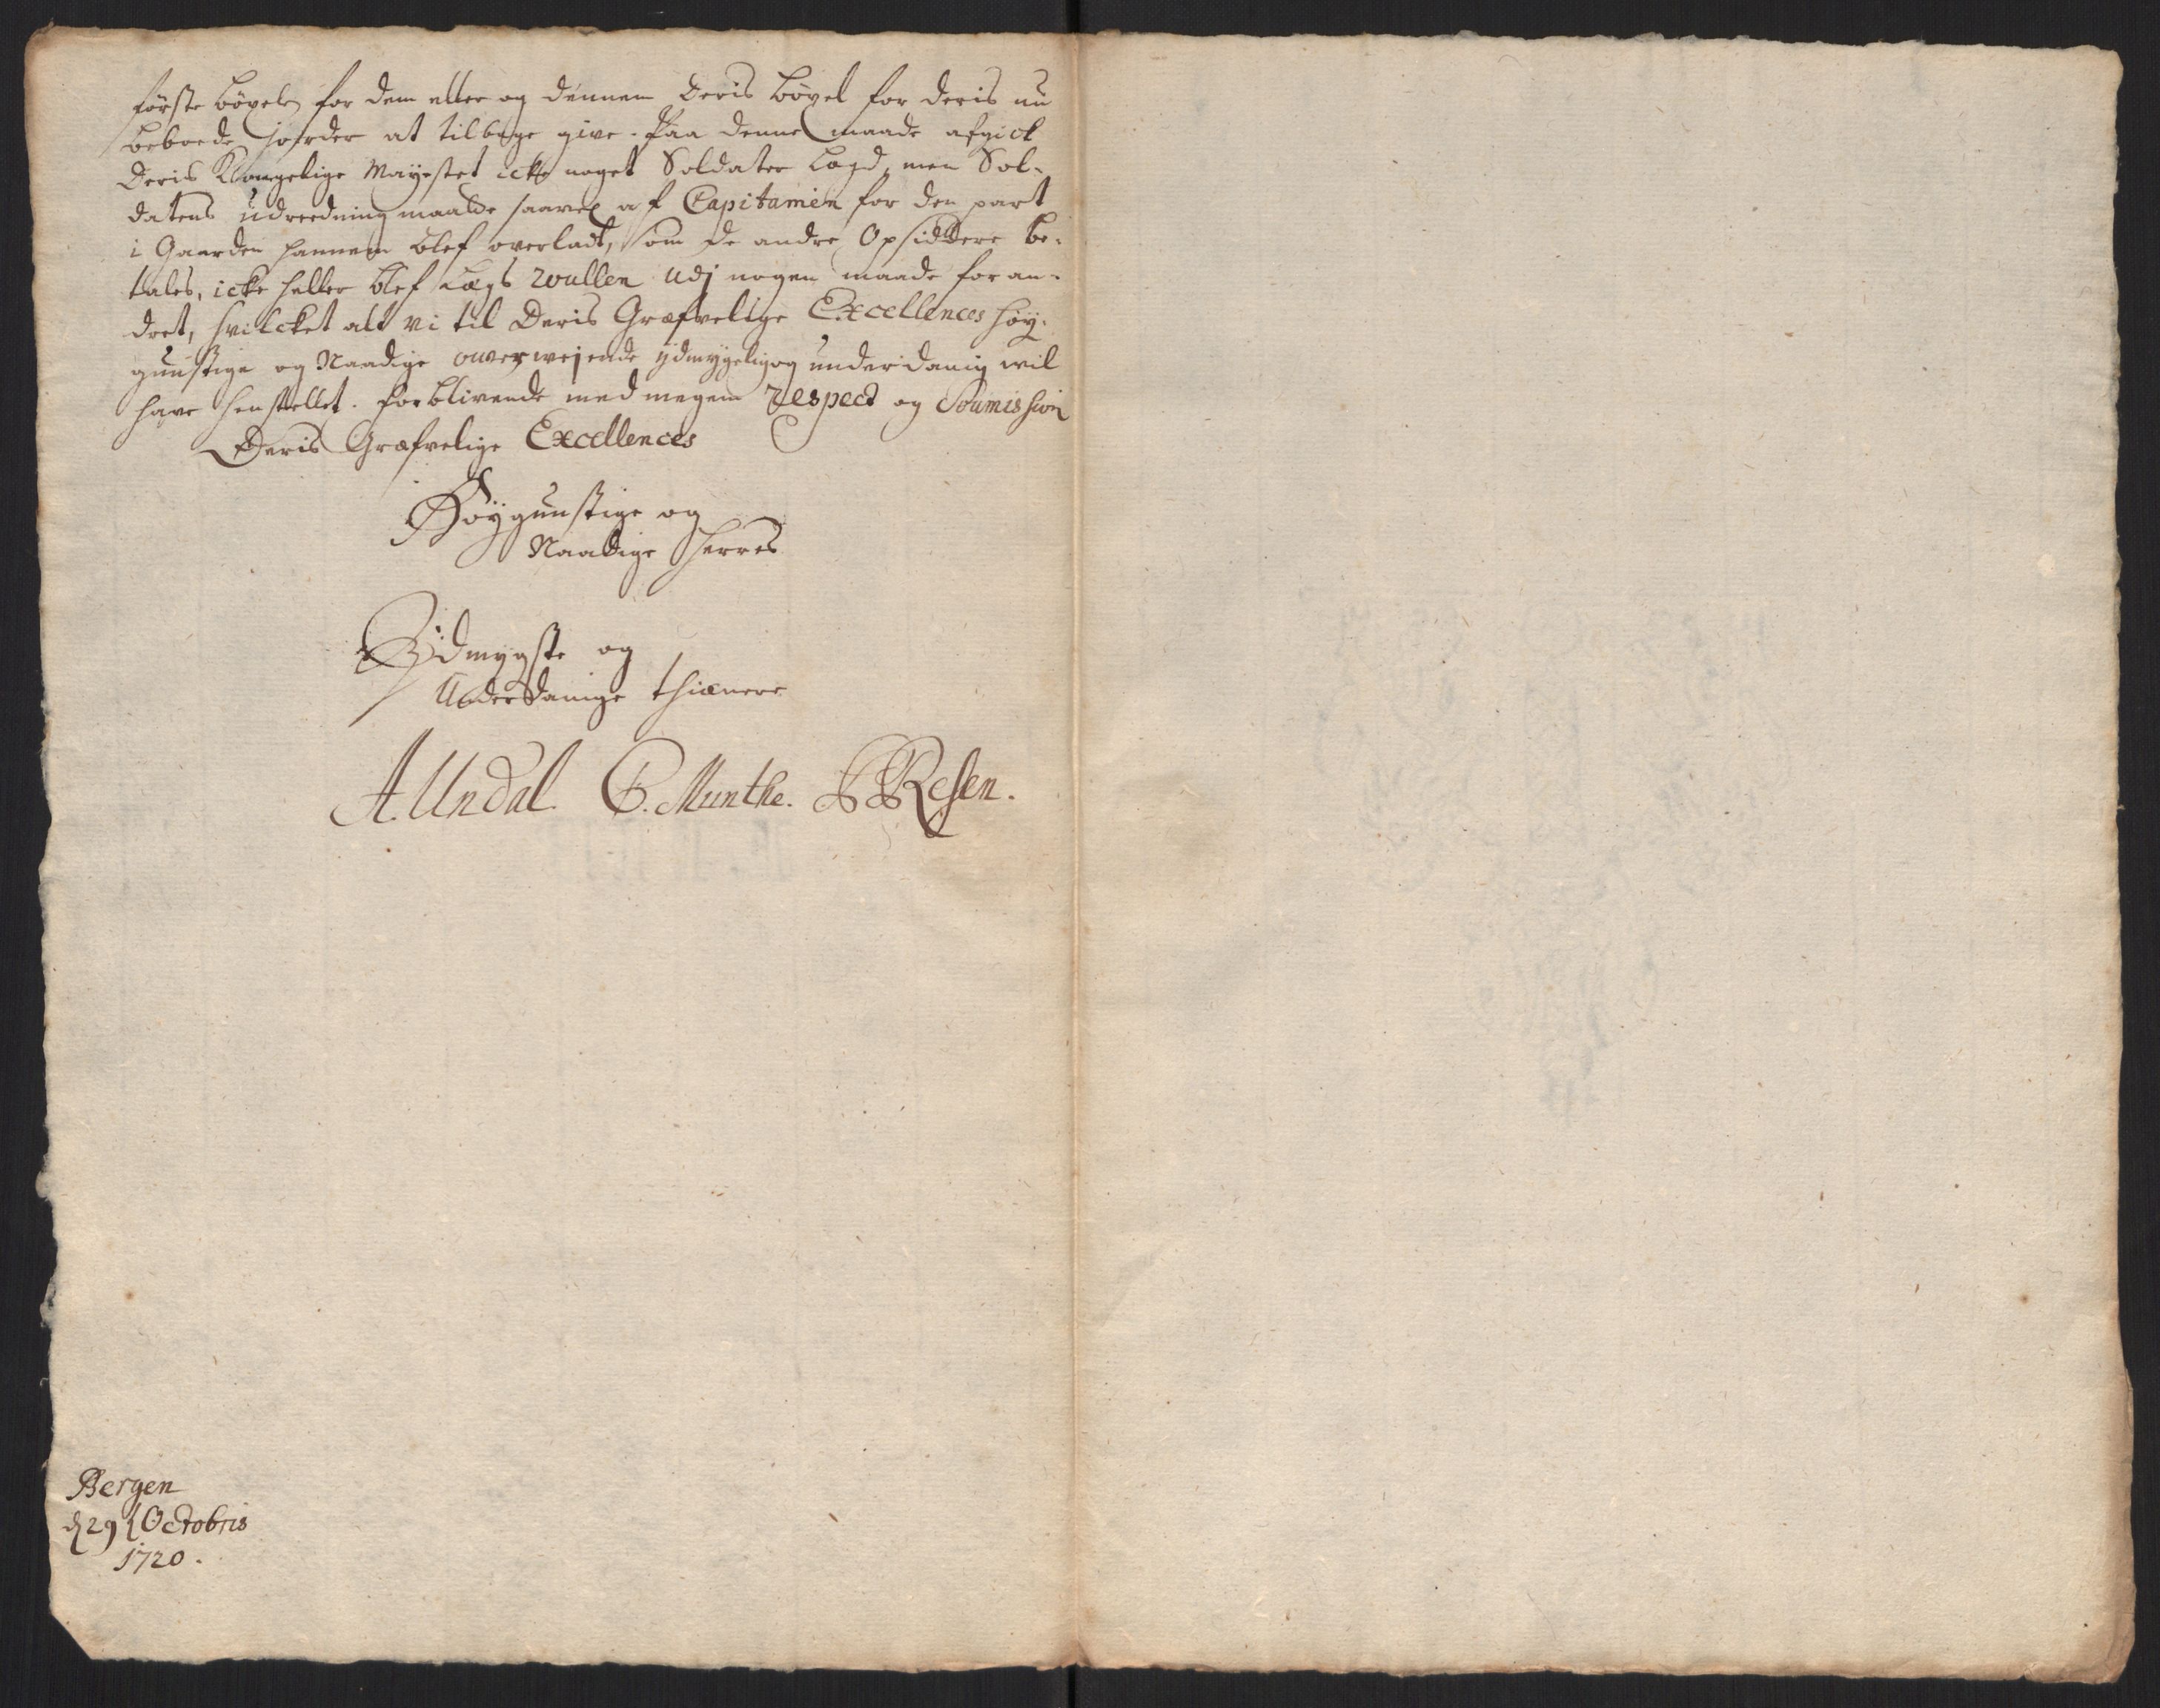 förste böxele for dem eller og dennem deris böxel for deris nu
beboede jorder at tilbage give. Paa denne maade afgick
Deris Kongelige Mayestet icke noget Soldater Lægd, men Sol-
datens udreedning maatte saavel af Capitainen for den part
i Gaarden hannem blef overladt, som de andre Opsiddere be-
tales, icke heller blef Lægs Rullen udj nogen maade foran-
dret, hvilcket alt vi til Deris Græfvelige Excellences höy-
gunstige og Naadige overwejende ydmygelig og underdanig wil
have henstellet. forblivende med megen respect og Soumission
Deris Græfvelige Excellences
Höygunstige og
Naadige Herres
Ydmygste og
Underdanige thiænere
A. Undal. C. Munthe. Resen.
Bergen
d 29 Octobris
1720.